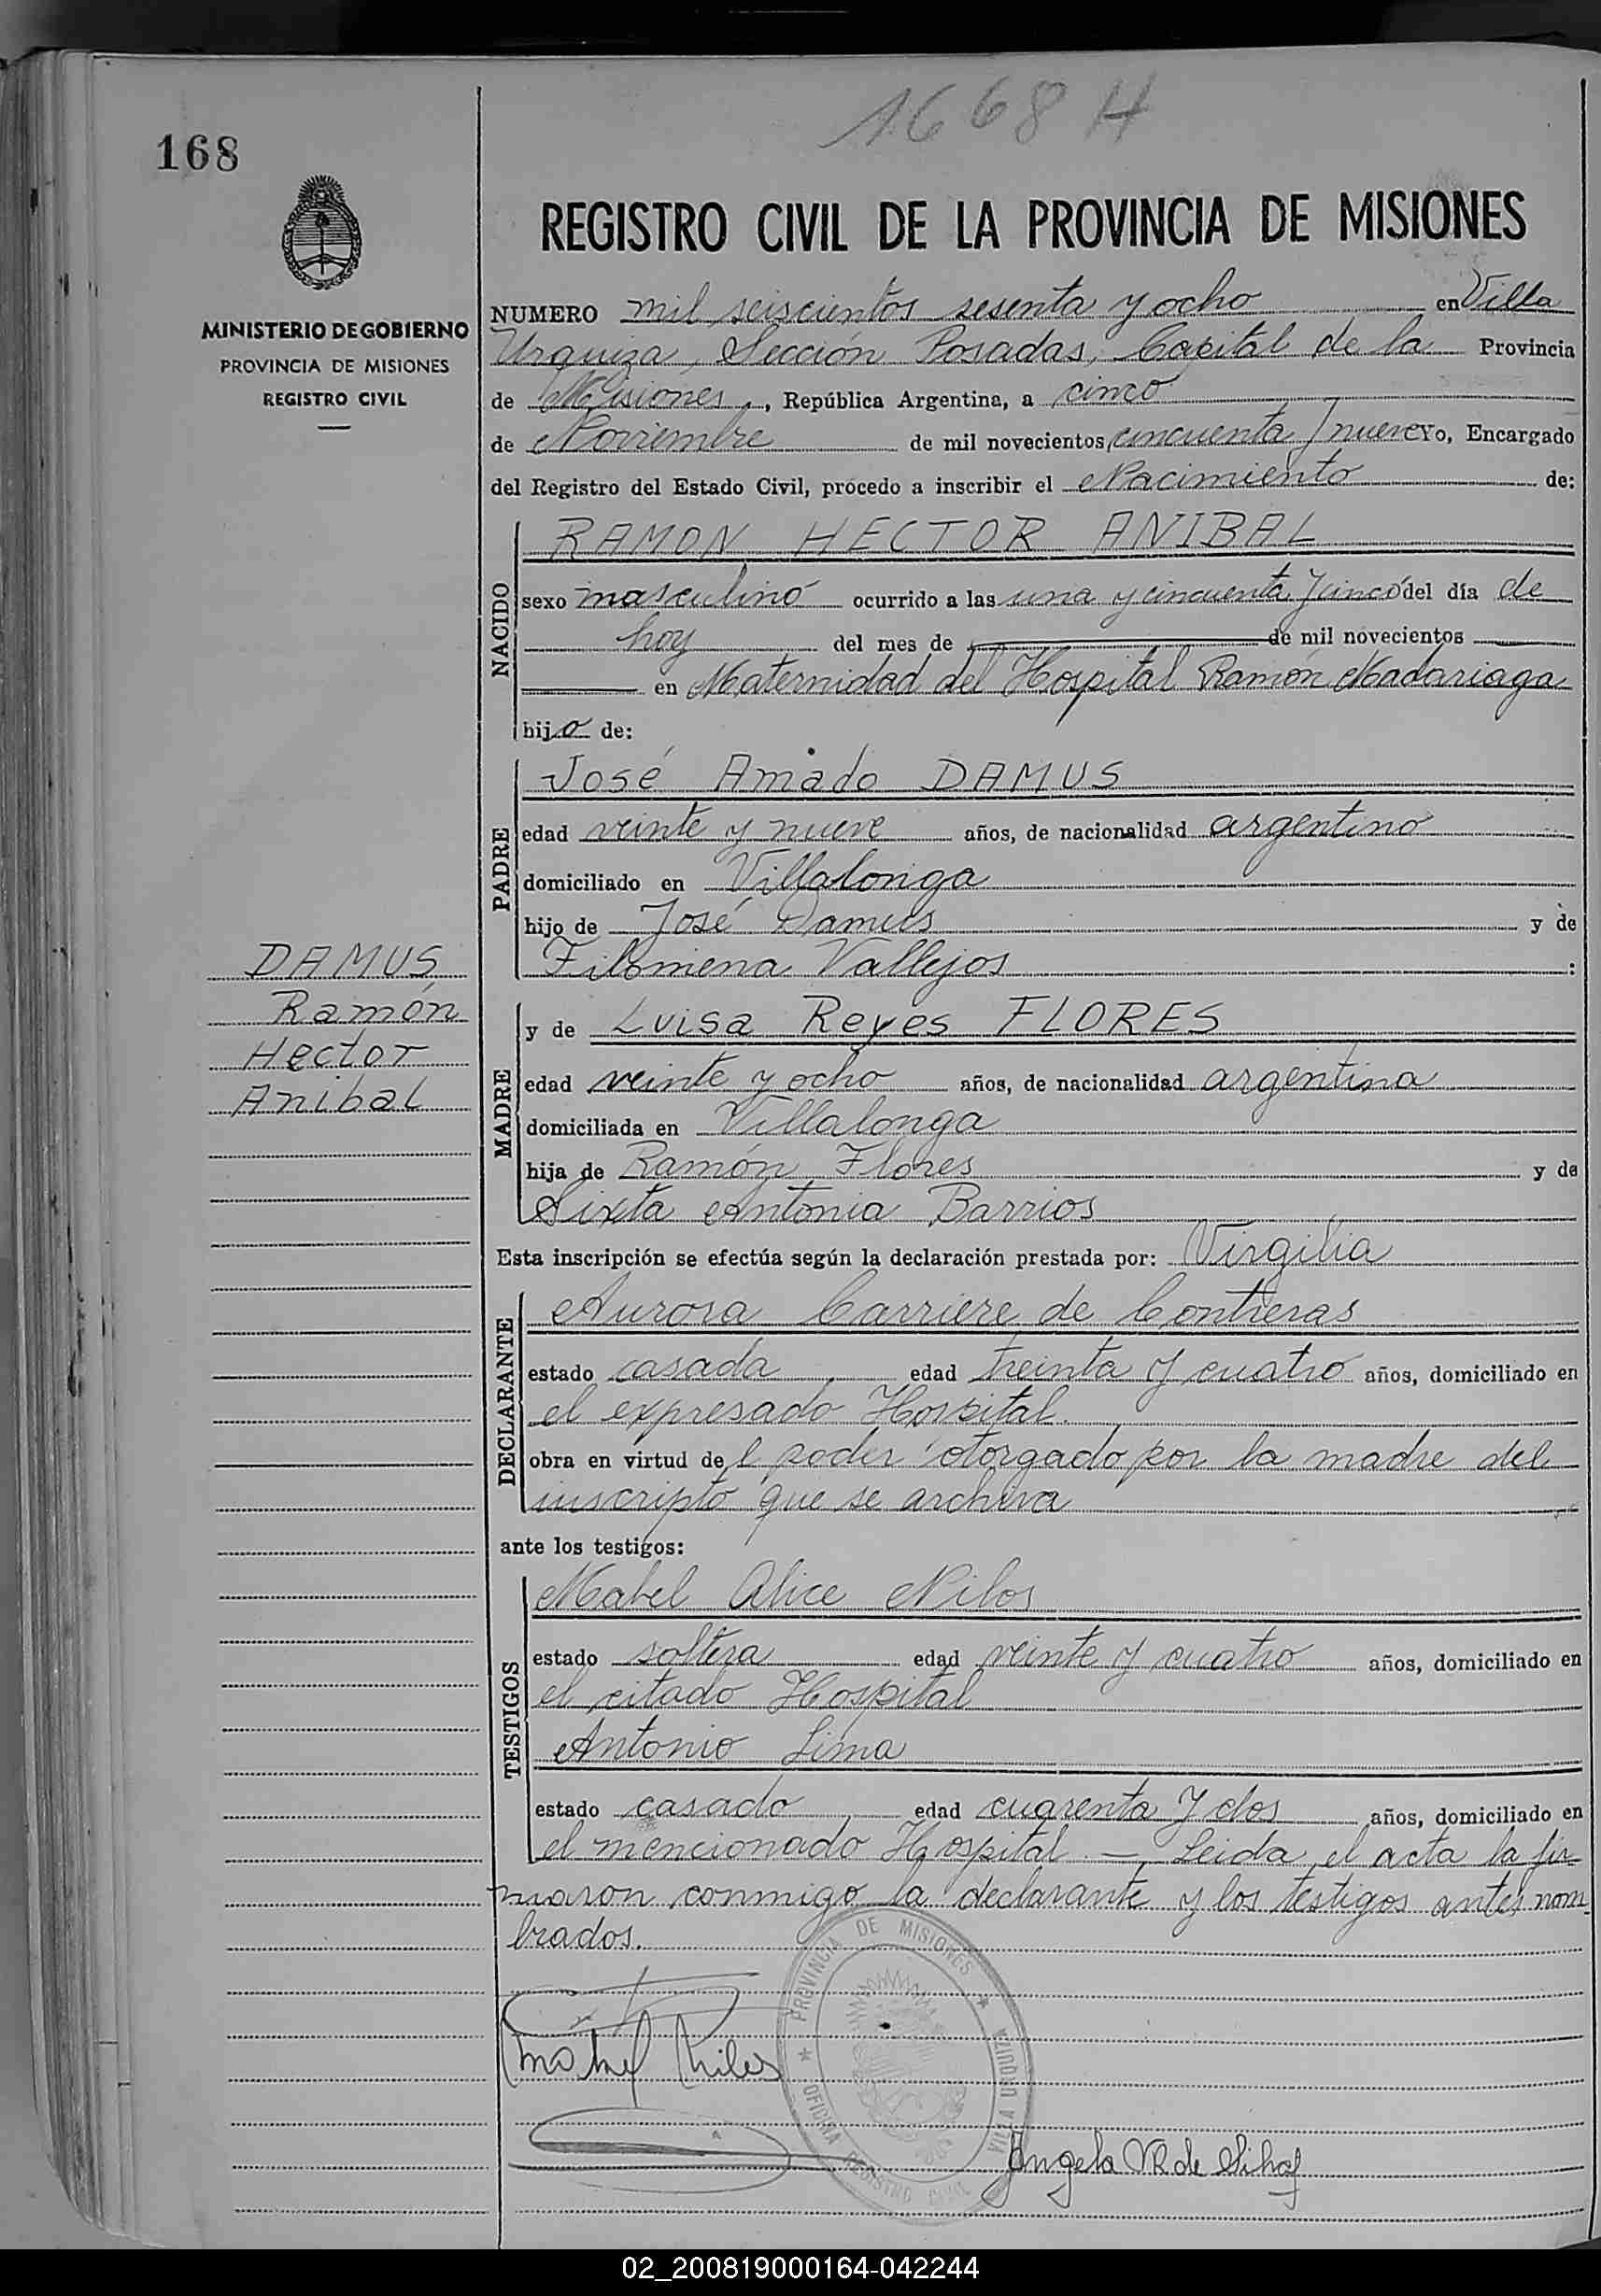 1668 H
168
REGISTRO CIVIL DE LA PROVINCIA DE MISIONES
MINISTERIO DE GOBIERNO
PROVINCIA DE MISIONES
REGISTRO CIVIL
NUMERO mil seiscientos sesenta y ocho en Villa
Urquiza, Sección Posadas, Capital de la Provincia
de Misiones, República Argentina, a cinco
de Noviembre de mil novecientos cincuenta y nueve yo, Encargado
del Registro del Estado Civil, procedo a inscribir el Nacimiento de:
NACIDO
RAMON HECTOR ANIBAL
sexo masculino ocurrido a las una y cincuenta y cinco del día de
hoy del mes de de mil novecientos
en Maternidad del Hospital Ramón Madariaga
hijo de:
PADRE
José Amado DAMUS
edad veinte y nueve años, de nacionalidad argentino
domiciliado en Villalonga
hijo de José Damus y de
Filomena Vallejos :
DAMUS
Ramón
Hector
Anibal
MADRE
y de Luisa Reyes FLORES
edad veinte y ocho años, de nacionalidad argentina
domiciliada en Villalonga
hija de Ramón Flores y de
Sixta Antonia Barrios
Esta inscripción se efectúa según la declaración prestada por: Virgilia
DECLARANTE
Aurora Carriere de Contreras
estado casada edad treinta y cuatro años, domiciliado en
el expresado Hospital.
obra en virtud del poder otorgado por la madre del
inscripto que se archiva
ante los testigos:
TESTIGOS
Mabel Alice Nilos
estado soltera edad veinte y cuatro años, domiciliado en
el citado Hospital
Antonio Lima
estado casado edad cuarenta y dos años, domiciliado en
el mencionado Hospital. — Leida el acta la fir
maron conmigo la declarante y los testigos antes nom
brados.
PROVINCIA DE MISIONES
OFICINA REGISTRO CIVIL
VILLA URQUIZA
Angela
02_200819000164-042244